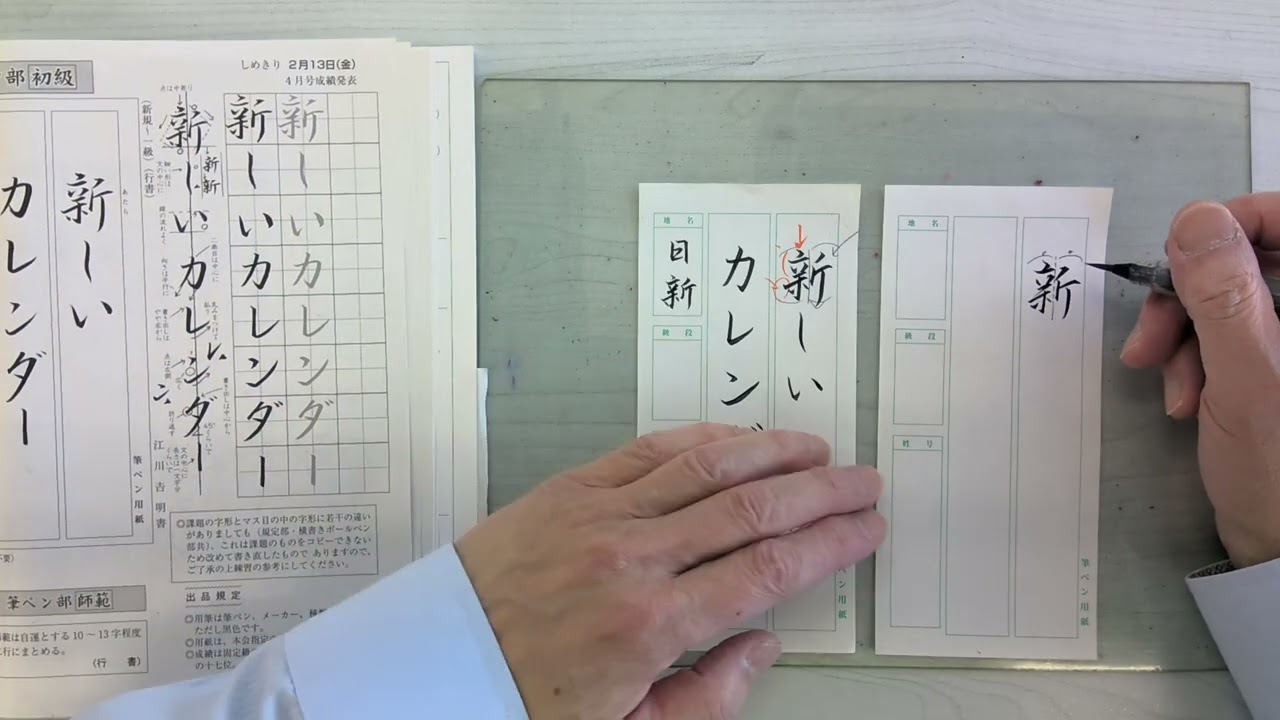 部初級
しめきり 2月13日(金)
4月号成績発表
(新規～一級)(行書)
新しい
カレンダー
あたら
新しいカレンダー
新しいカレンダー
新しいカレンダー
点は中寄り
新
新
レ
ン
45°
筆ペン用紙
江川吉明書
◎課題の字形とマス目の中の字形に若干の違い
がありましても(規定部・横書きボールペン
部共)、これは課題のものをコピーできない
ため改めて書き直したものでありますので、
ご了承の上練習の参考にしてください。
筆ペン部師範
範は自運とする10～13字程度
行にまとめる。
(行 書)
出品規定
◎用筆は筆ペン、メーカー、種
ただし黒色です。
◎用紙は、本会指定の
◎成績は固定級
の十七位。
新しい
カレンダ
地名
日新
級段
筆ペン用紙
新
地名
級段
姓号
筆ペン用紙